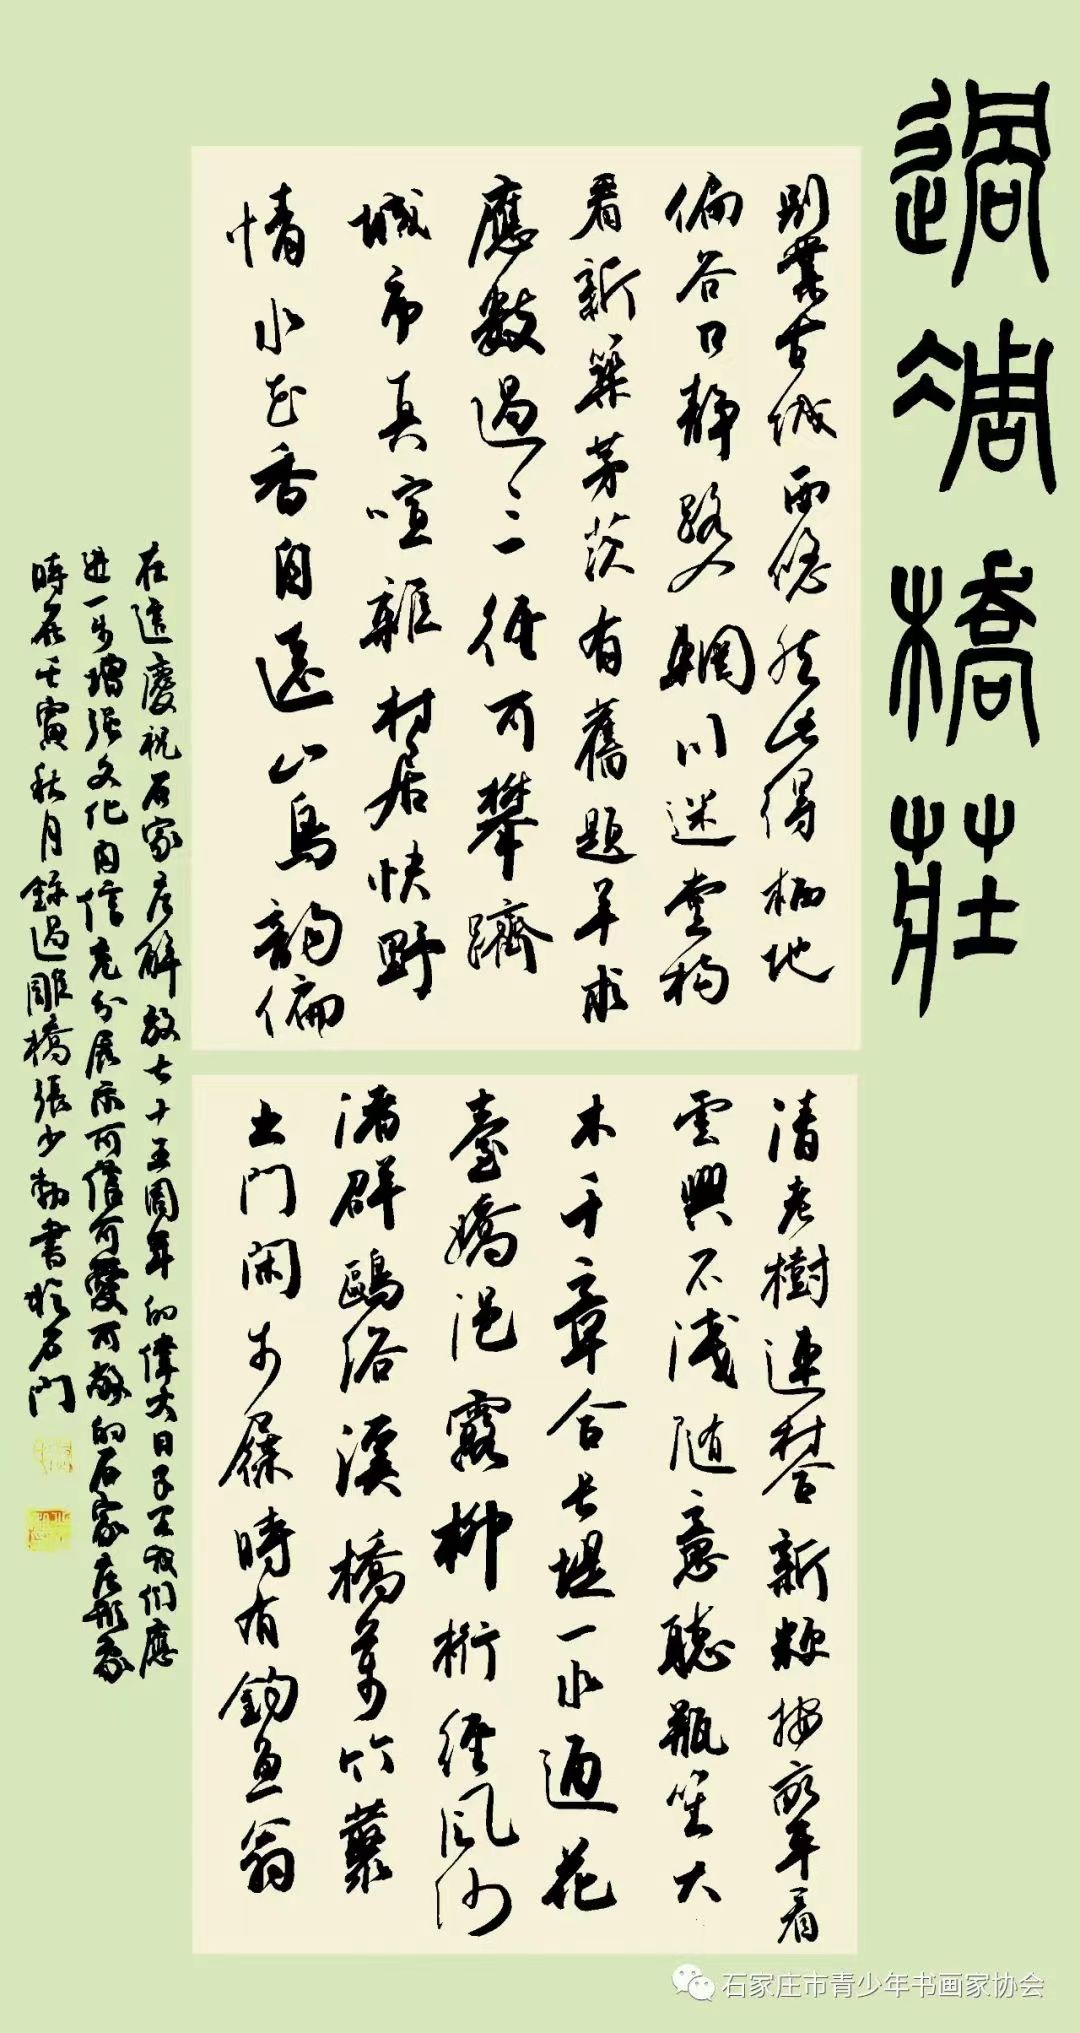 過凋橋莊
別業古城西悠然此得栖地
偏谷口靜路入輞川迷堂构
看新築茅茨有舊題羊求
應數過三徑可攀躋
城市真喧雜村居快野
情水花香自遠山鳥韵偏
清老樹連村合新粳按畝平看
雲興不淺随意聽瓶笙大
木千章合長堤一水通花
臺嬌浥露柳桁徑風沙
渚群鷗浴溪橋萬竹叢
土門闲步屧時有釣魚翁
在這慶祝石家庄解放七十五周年的偉大日子里我們應
進一步增强文化自信充分展示可信可愛可敬的石家庄形象
時在壬寅秋月錄過雕橋張少勃書於石門
石家庄市青少年书画家协会